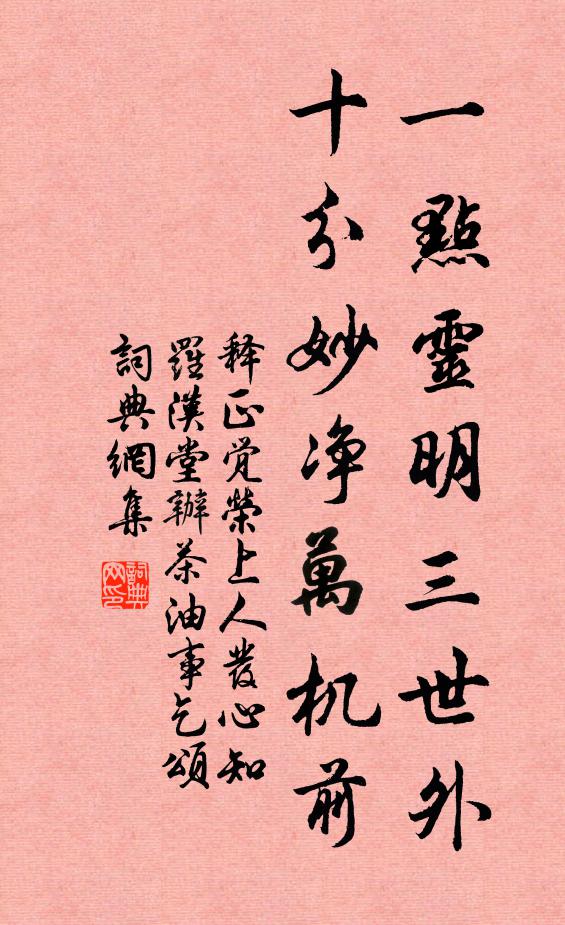 一點靈明三世外
十分妙净萬机前
释正觉榮上人發心知
羅漢堂辦茶油事乞頌
詞典網集
詞典网印